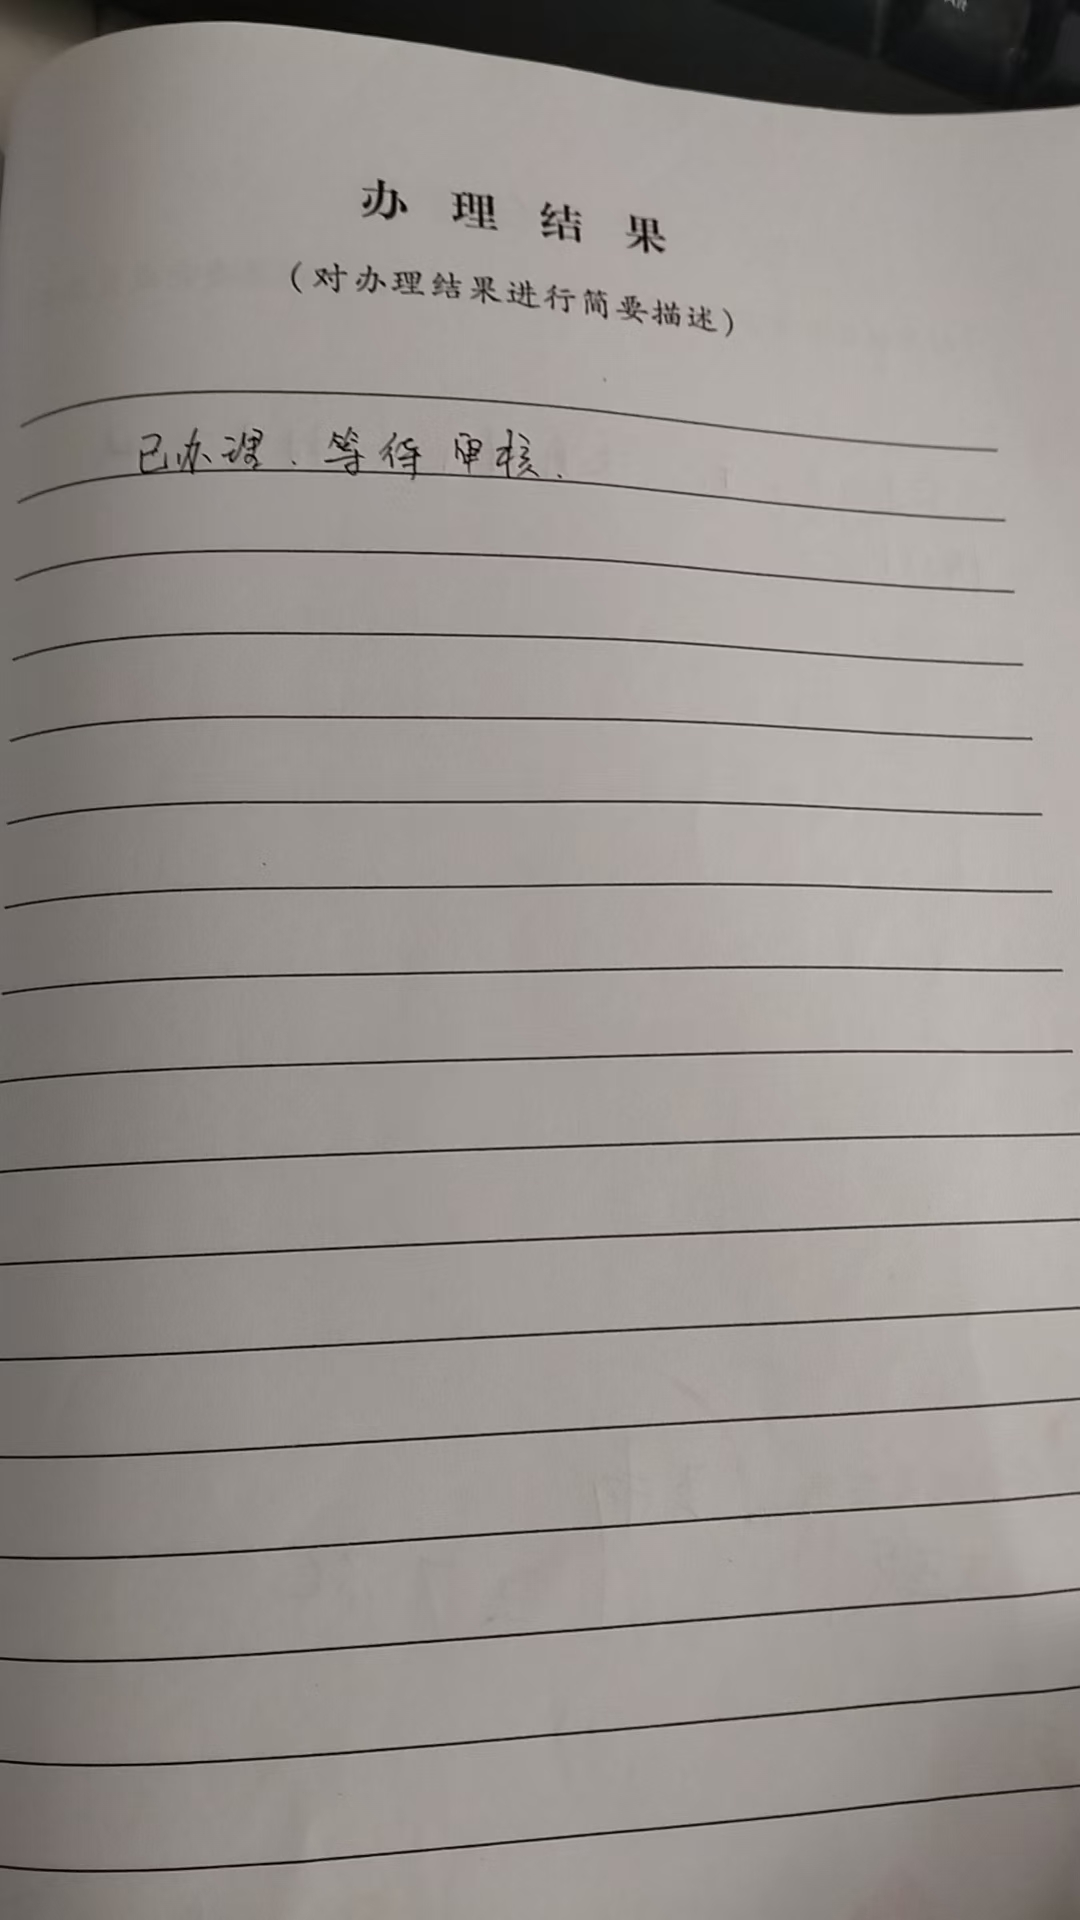 办理结果
（对办理结果进行简要描述）
已办理、等待审核.